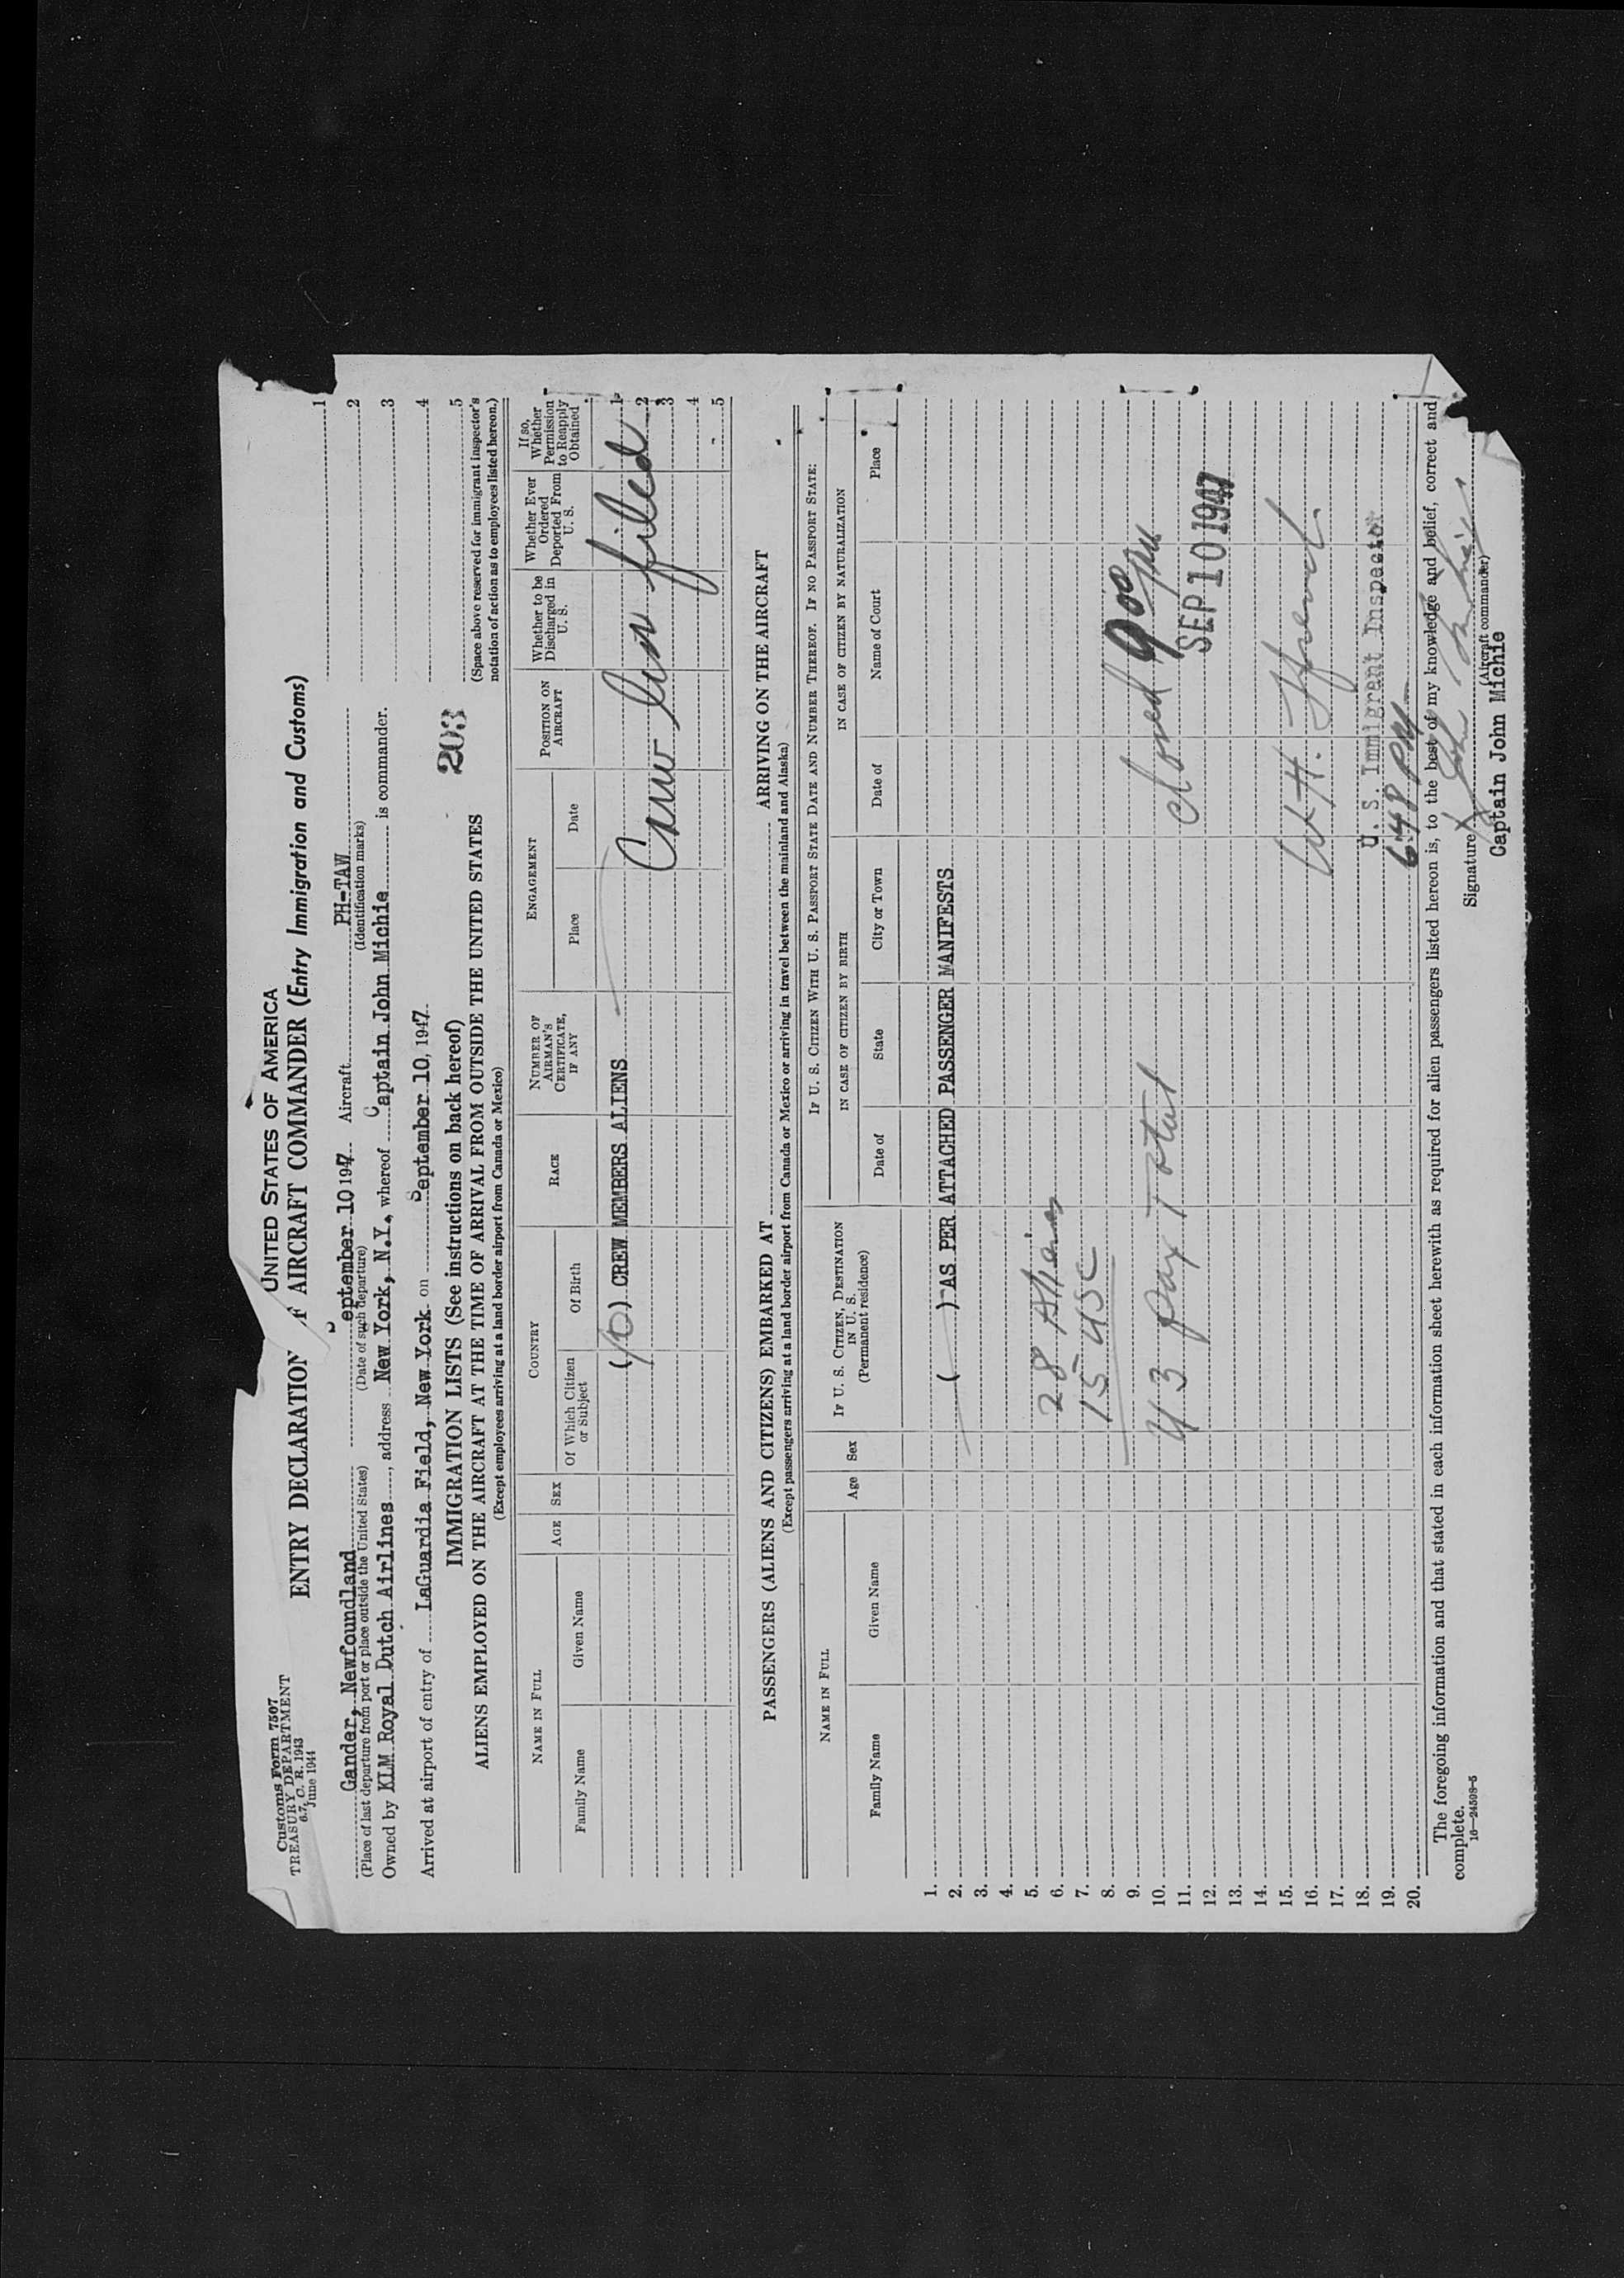 Customs Form 7507
TREASURY DEPARTMENT
6.7, C. R. 1943
June 1944
UNITED STATES OF AMERICA
ENTRY DECLARATION OF AIRCRAFT COMMANDER (Entry Immigration and Customs)
Gander, Newfoundland September 10 1947 Aircraft PH-TAW
(Place of last departure from port or place outside the United States) (Date of such departure) (Identification marks)
Owned by KLM Royal Dutch Airlines, address New York, N.Y., whereof Captain John Michie is commander.
Arrived at airport of entry of LaGuardia Field, New York on September 10, 1947
1
2
3
4
5
(Space above reserved for immigrant inspector's
notation of action as to employees listed hereon.)
203
IMMIGRATION LISTS (See instructions on back hereof)
ALIENS EMPLOYED ON THE AIRCRAFT AT THE TIME OF ARRIVAL FROM OUTSIDE THE UNITED STATES
(Except employees arriving at a land border airport from Canada or Mexico)
NAME IN FULL
Family Name Given Name
AGE
SEX
COUNTRY
Of Which Citizen or Subject
Of Birth
RACE
NUMBER OF AIRMAN'S CERTIFICATE, IF ANY
ENGAGEMENT
Place Date
POSITION ON AIRCRAFT
Whether to be Discharged in U. S.
Whether Ever Ordered Deported From U. S.
If so, Whether Permission to Reapply Obtained
(10) CREW MEMBERS ALIENS
Crew list filed
1
2
3
4
5
PASSENGERS (ALIENS AND CITIZENS) EMBARKED AT ARRIVING ON THE AIRCRAFT
(Except passengers arriving at a land border airport from Canada or Mexico or arriving in travel between the mainland and Alaska)
NAME IN FULL
Family Name Given Name
Age
Sex
IF U. S. CITIZEN, DESTINATION IN U. S.
(Permanent residence)
IF U. S. CITIZEN WITH U. S. PASSPORT STATE DATE AND NUMBER THEREOF. IF NO PASSPORT STATE:
IN CASE OF CITIZEN BY BIRTH IN CASE OF CITIZEN BY NATURALIZATION
Date of State City or Town Date of Name of Court Place
1.
2. ( ) AS PER ATTACHED PASSENGER MANIFESTS
3.
4.
5.
6. 28 Aliens
7. 15 USC
8.
9.
10. 43 pax Total closed 9 00 pm
11.
12. SEP 10 1947
13.
14.
15.
16. W. H.
17.
18. U. S. Immigrant Inspector
19. 648 PM
20.
The foregoing information and that stated in each information sheet herewith as required for alien passengers listed hereon is, to the best of my knowledge and belief, correct and
complete.
16—24508-5
Signature X John Michie
(Aircraft commander)
Captain John Michie